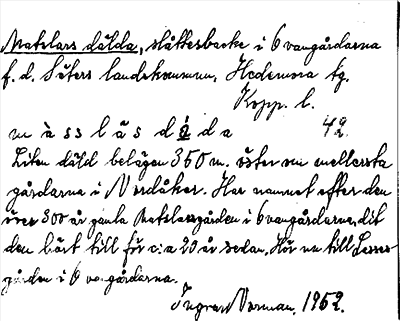 Matslars dälda, slåttesbacke i Övangårdarna
f. d. Säters landskommun, Hedemora tg.
Kopp. l.
m à ss l ä s d ä d a 42.
Liten däld belägen 350 m. öster om mellersta
gårdarna i Nordåker. Har namnet efter den
över 300 år gamla Matslarsgården i Övangårdarna, dit
den hört till för c:a 20 år sedan. Hör nu till
gården i Övangårdarna.
Ingvar Norman, 1952.